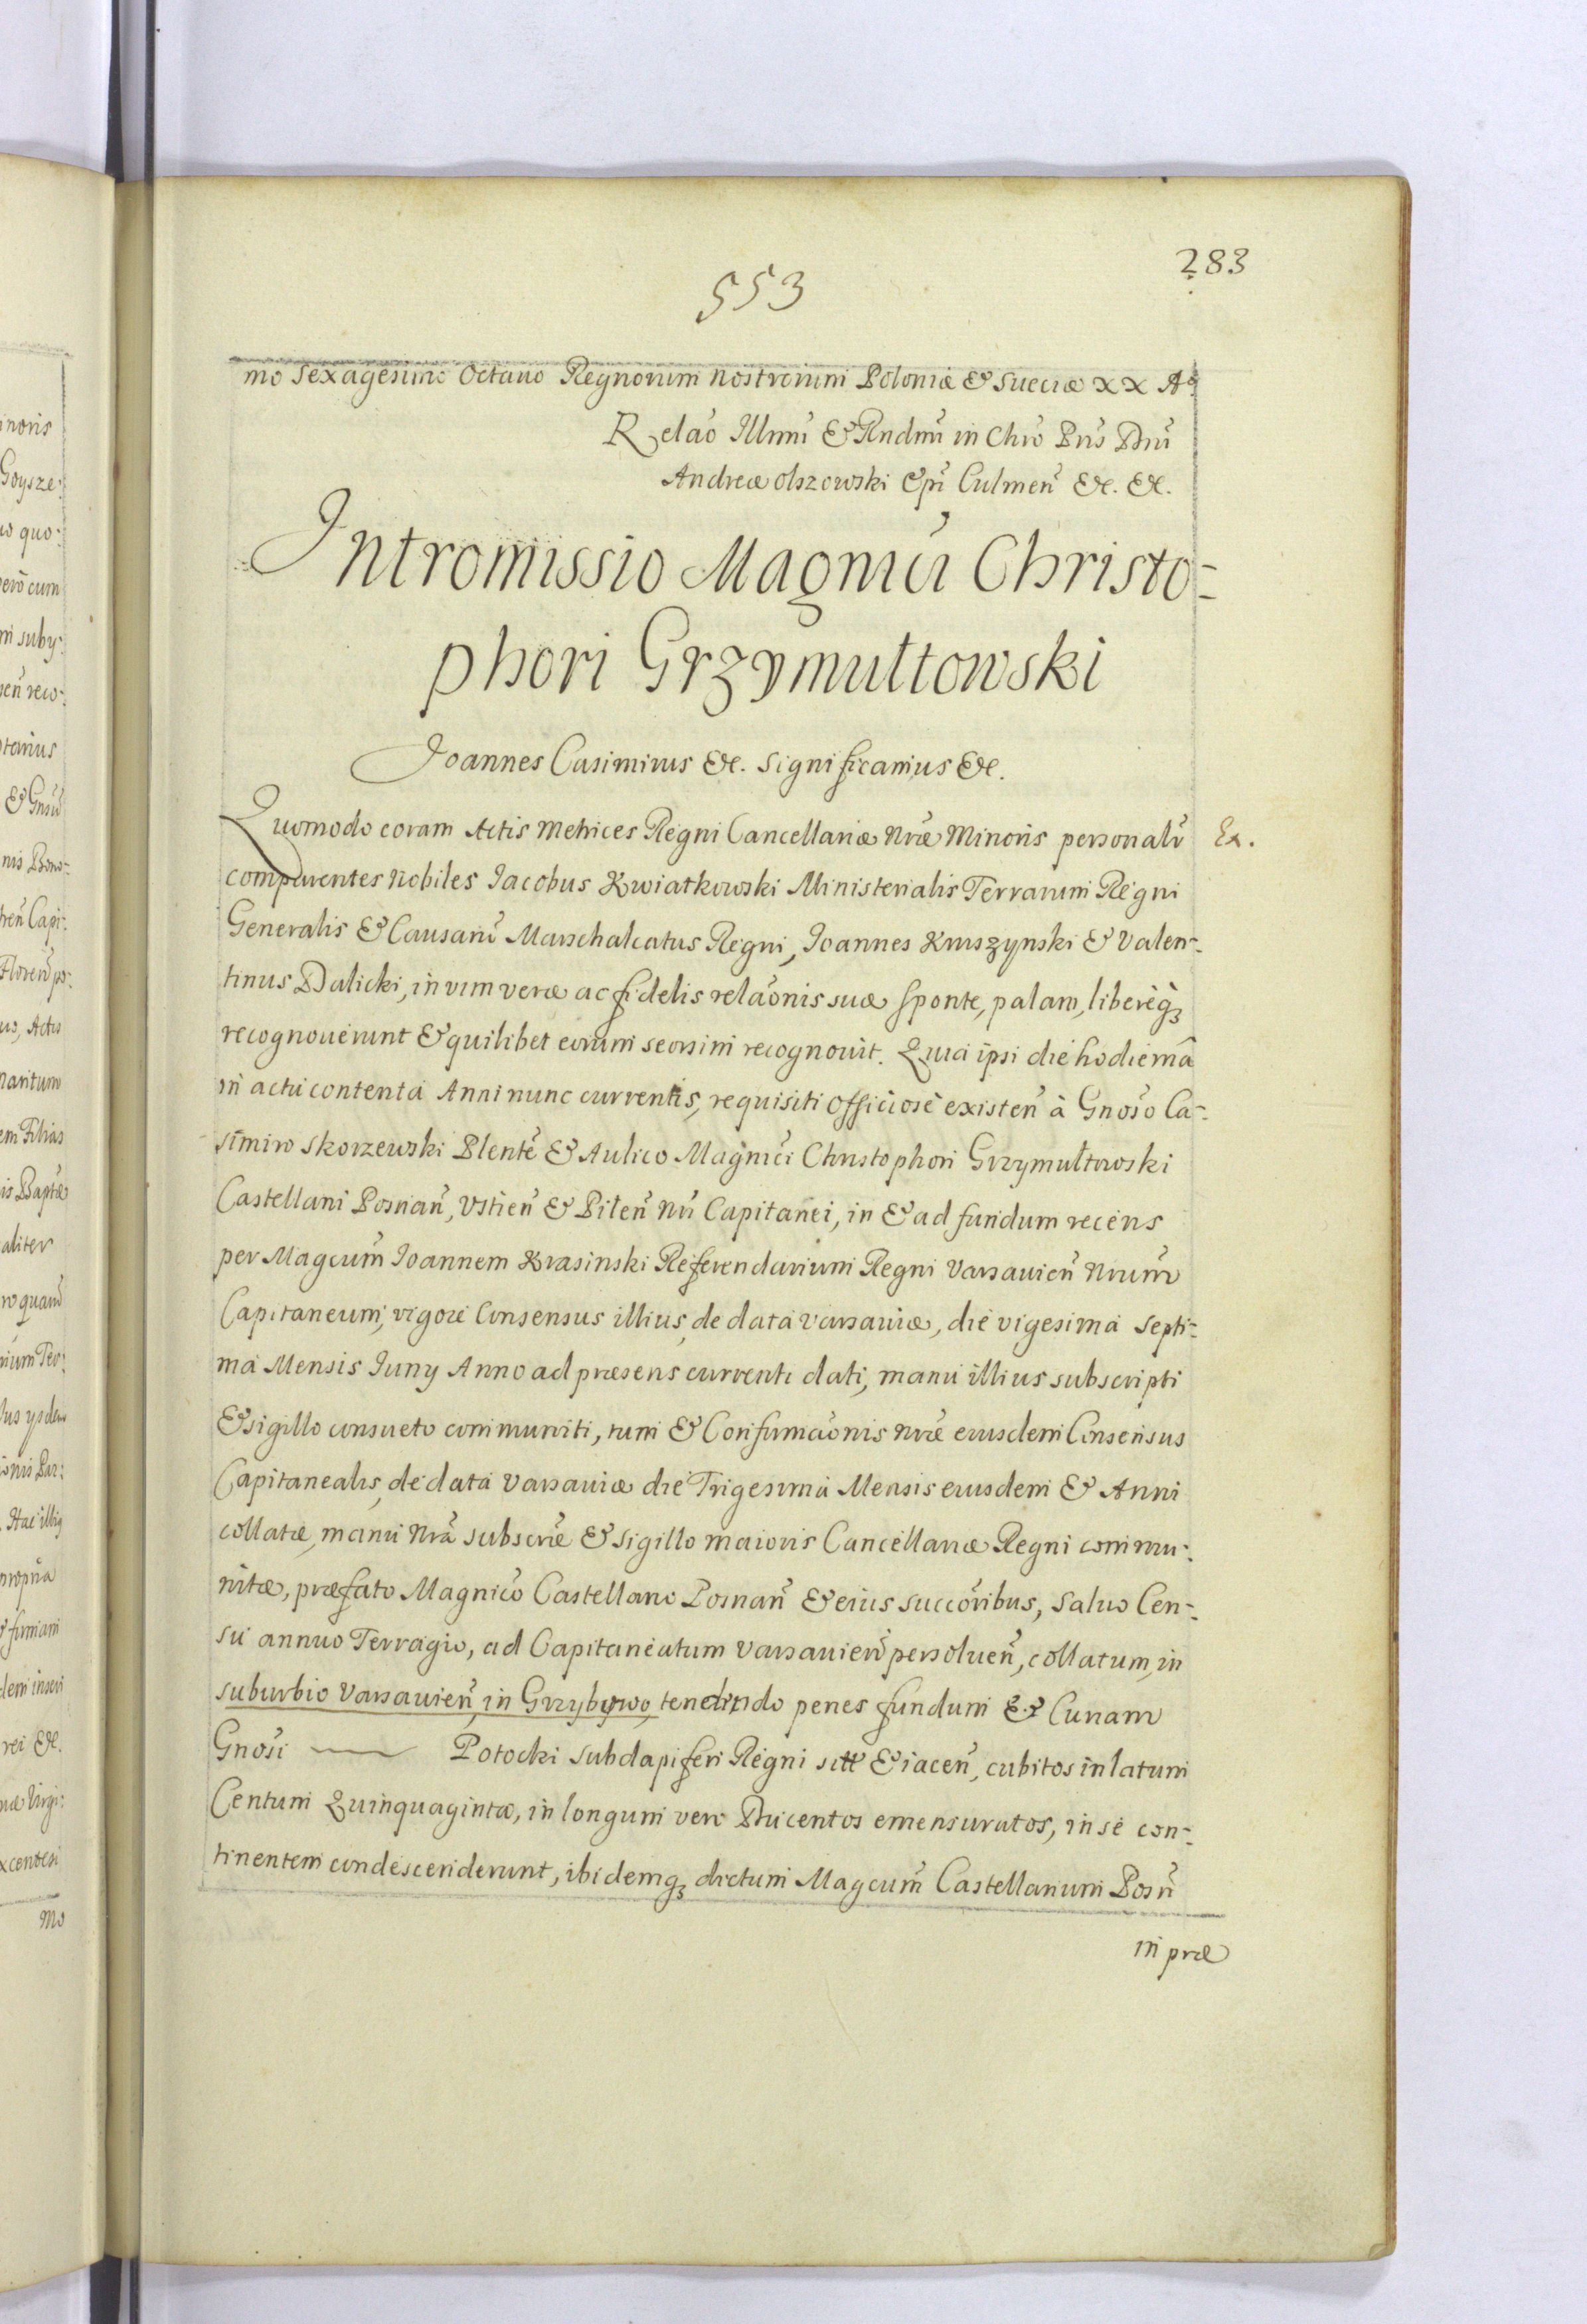 283
553
mo Sexagesimo Octavo Regnorum nostrorum Poloniæ & Sueciæ XX Aº
Relaõ Illmi & Rndmi in Chro Pris Dni
Andreæ Olszowski Epi Culmeñ &c. &c.
Intromissio Magnici Christo-
phori Grzymułtowski
Joannes Casimirus &c. Significamus &c.
Quomodo coram Actis Metrices Regni Cancellariæ Nræ Minoris personalr Ex.
comparentes Nobiles Jacobus Kwiatkowski Ministerialis Terrarum Regni
Generalis & Causarũ Marschalcatus Regni, Joannes Kruszynski & Valen-
tinus Dalicki, in vim veræ ac fidelis relaõnis suæ sponte, palam, liberèq3
recognoverunt & quilibet eorum seorsim recognovit. Quia ipsi die hodierna
in actu contenta Anni nunc currentis, requisiti officiosè existeñ à Gnoso Ca-
simiro Skorzewski Plente & Aulico Magnici Christophori Grzymułtowski
Castellani Posnañ, Ustieñ & Pileñ Nri Capitanei, in & ad fundum recens
per Magcum Joannem Krasinski Referendarium Regni Varsavieñ Nrum
Capitaneum, vigore Consensus illius, de data Varsaviæ, die vigesima septi-
ma Mensis Juny Anno ad præsens currenti dati, manu illius subscripti
& sigillo consueto communiti, tum & Confirmaõnis Nræ eiusdem Consensus
Capitanealis, de data Varsaviæ die Trigesima Mensis eiusdem & Anni
collatæ, manu Nrã subscræ & Sigillo maioris Cancellariæ Regni commu-
nitæ, præfato Magnico Castellano Posnañ & eius succoribus, salvo Cen-
su annuo Terragio, ad Capitaneatum Varsavieñ persolveñ, collatum, in
suburbio Varsavieñ, in Grzybowo, tendendo penes fundum & Curiam
Gnosi — Potocki Subdapiferi Regni sitt & iaceñ, cubitos in latum
Centum Quinquaginta, in longum vero Ducentos emensuratos, in se con-
tinentem condescenderunt, ibidemq3 dictum Magcum Castellanum Posñ
in præ